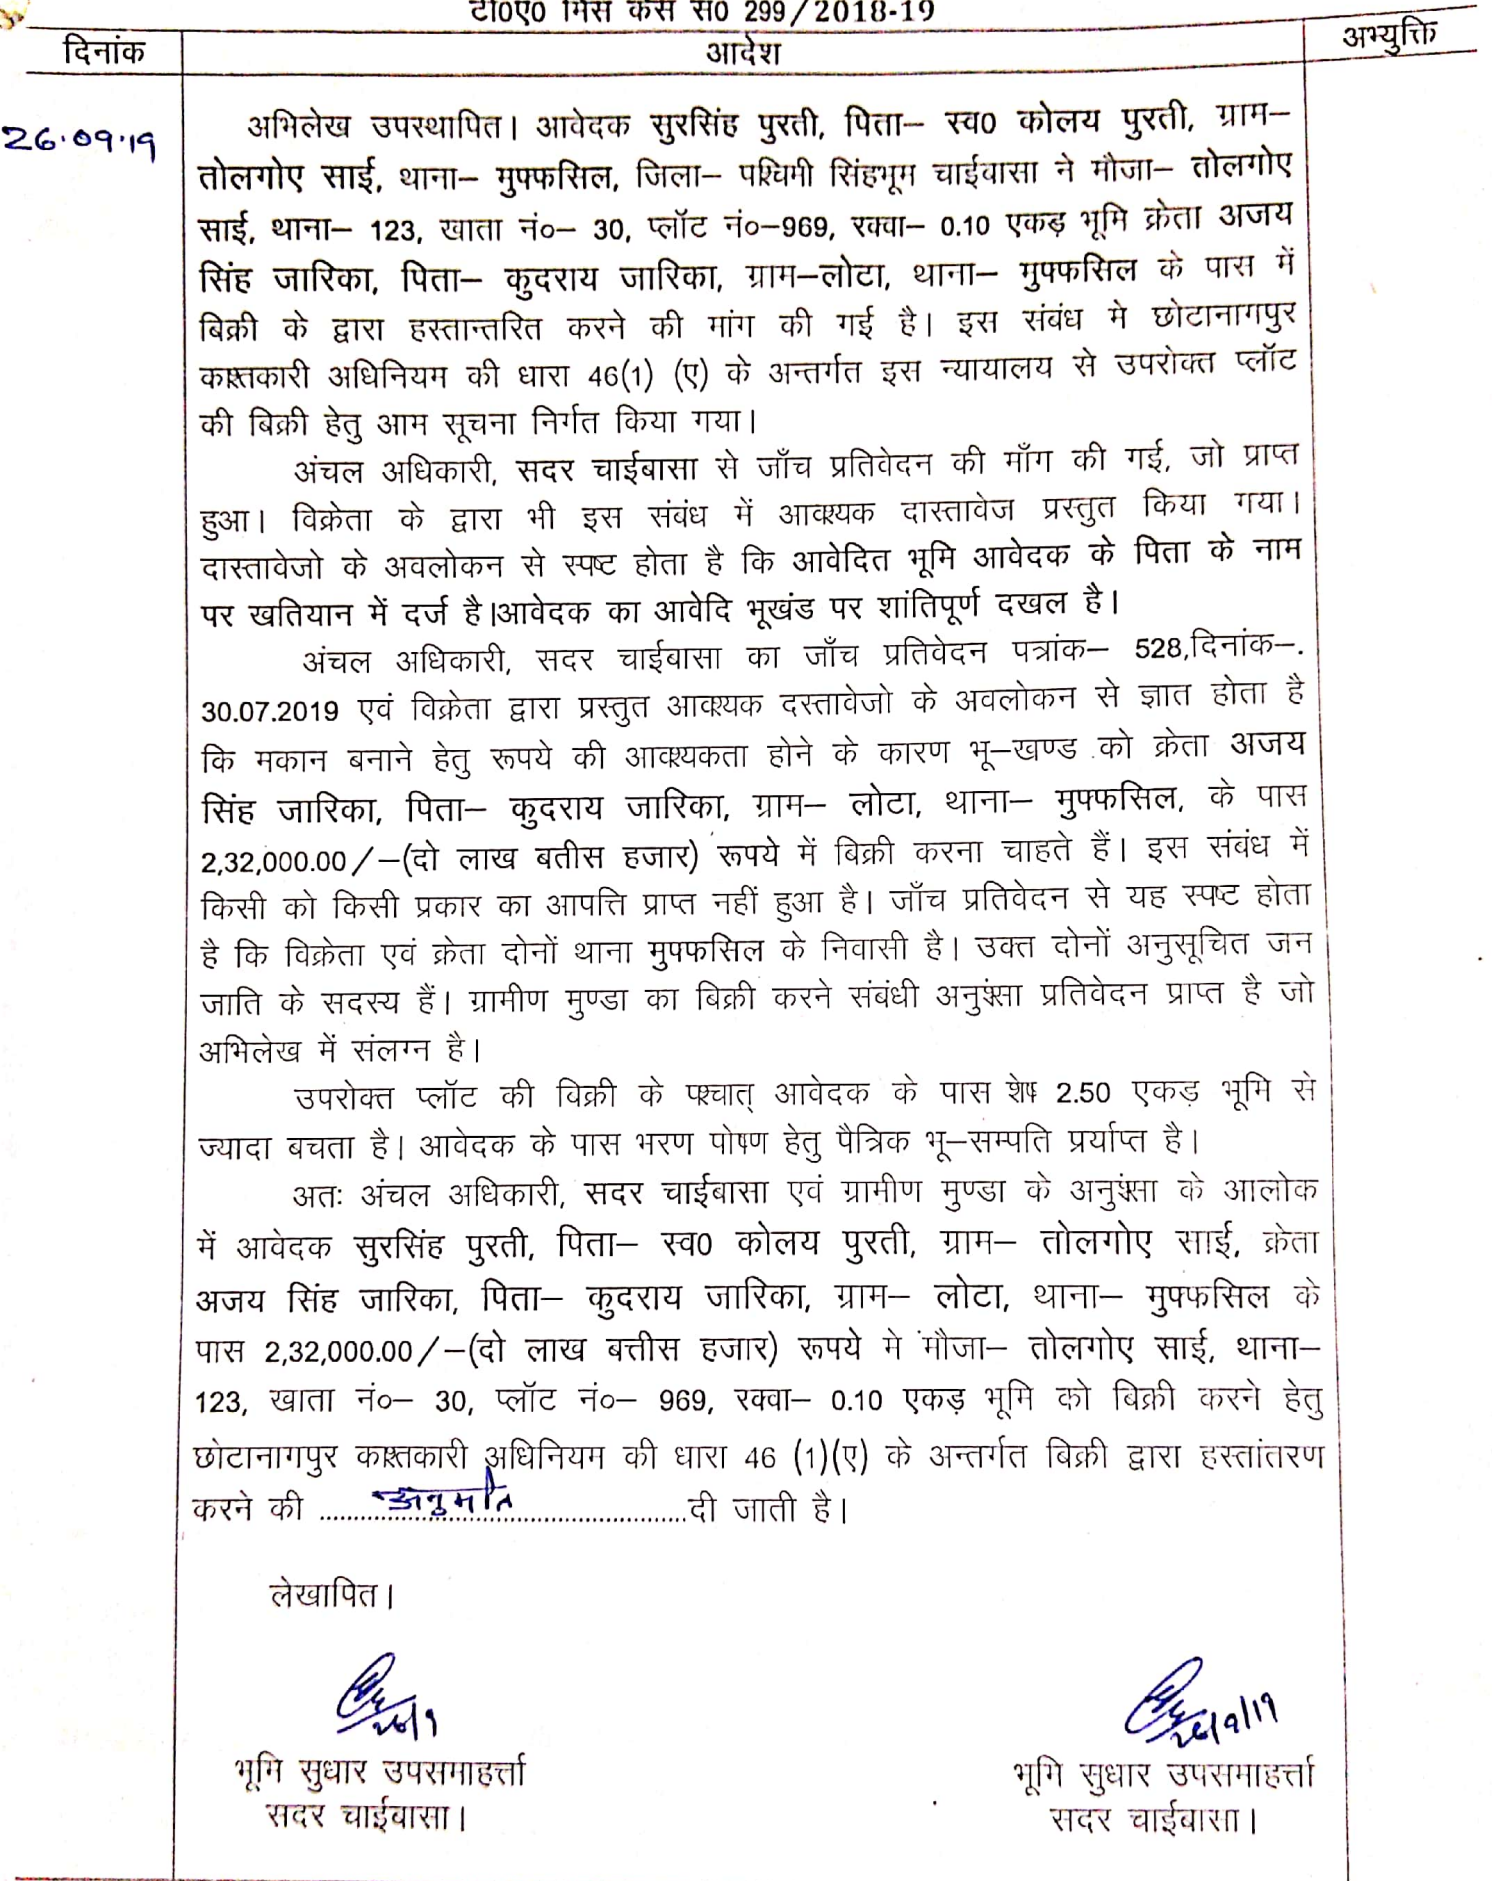 टी०ए० मिस केस सं० 299/2018-19
दिनांक
आदेश
अभ्युक्ति
26.09.19
अभिलेख उपस्थापित। आवेदक सुरसिंह पुरती, पिता– स्व0 कोलय पुरती, ग्राम–
तोलगोए साई, थाना– मुफ्फसिल, जिला– पश्चिमी सिंहभूम चाईबासा ने मौजा– तोलगोए
साई, थाना– 123, खाता नं०– 30, प्लॉट नं०–969, रक्वा– 0.10 एकड़ भूमि क्रेता अजय
सिंह जारिका, पिता– कुदराय जारिका, ग्राम–लोटा, थाना– मुफ्फसिल के पास में
बिक्री के द्वारा हस्तान्तरित करने की मांग की गई है। इस संबंध मे छोटानागपुर
काश्तकारी अधिनियम की धारा 46(1) (ए) के अन्तर्गत इस न्यायालय से उपरोक्त प्लॉट
की बिक्री हेतु आम सूचना निर्गत किया गया।
अंचल अधिकारी, सदर चाईबासा से जाँच प्रतिवेदन की माँग की गई, जो प्राप्त
हुआ। विक्रेता के द्वारा भी इस संबंध में आवश्यक दास्तावेज प्रस्तुत किया गया।
दास्तावेजो के अवलोकन से स्पष्ट होता है कि आवेदित भूमि आवेदक के पिता के नाम
पर खतियान में दर्ज है।आवेदक का आवेदि भूखंड पर शांतिपूर्ण दखल है।
अंचल अधिकारी, सदर चाईबासा का जाँच प्रतिवेदन पत्रांक– 528,दिनांक–.
30.07.2019 एवं विक्रेता द्वारा प्रस्तुत आवश्यक दस्तावेजो के अवलोकन से ज्ञात होता है
कि मकान बनाने हेतु रूपये की आवश्यकता होने के कारण भू–खण्ड को क्रेता अजय
सिंह जारिका, पिता– कुदराय जारिका, ग्राम– लोटा, थाना– मुफ्फसिल, के पास
2,32,000.00/–(दो लाख बतीस हजार) रूपये में बिक्री करना चाहते हैं। इस संबंध में
किसी को किसी प्रकार का आपत्ति प्राप्त नहीं हुआ है। जाँच प्रतिवेदन से यह स्पष्ट होता
है कि विक्रेता एवं क्रेता दोनों थाना मुफ्फसिल के निवासी है। उक्त दोनों अनुसूचित जन
जाति के सदस्य हैं। ग्रामीण मुण्डा का बिक्री करने संबंधी अनुशंसा प्रतिवेदन प्राप्त है जो
अभिलेख में संलग्न है।
उपरोक्त प्लॉट की विक्री के पश्चात् आवेदक के पास शेष 2.50 एकड़ भूमि से
ज्यादा बचता है। आवेदक के पास भरण पोषण हेतु पैत्रिक भू–सम्पति प्रर्याप्त है।
अतः अंचल अधिकारी, सदर चाईबासा एवं ग्रामीण मुण्डा के अनुशंसा के आलोक
में आवेदक सुरसिंह पुरती, पिता– स्व0 कोलय पुरती, ग्राम– तोलगोए साई, क्रेता
अजय सिंह जारिका, पिता– कुदराय जारिका, ग्राम– लोटा, थाना– मुफ्फसिल के
पास 2,32,000.00/–(दो लाख बत्तीस हजार) रूपये मे मौजा– तोलगोए साई, थाना–
123, खाता नं०– 30, प्लॉट नं०– 969, रक्वा– 0.10 एकड़ भूमि को बिक्री करने हेतु
छोटानागपुर काश्तकारी अधिनियम की धारा 46 (1)(ए) के अन्तर्गत बिक्री द्वारा हस्तांतरण
करने की ......अनुमति......दी जाती है।
लेखापित।
26/9
26/9/19
भूमि सुधार उपसमाहर्त्ता
भूमि सुधार उपसमाहर्त्ता
सदर चाईबासा।
सदर चाईबासा।